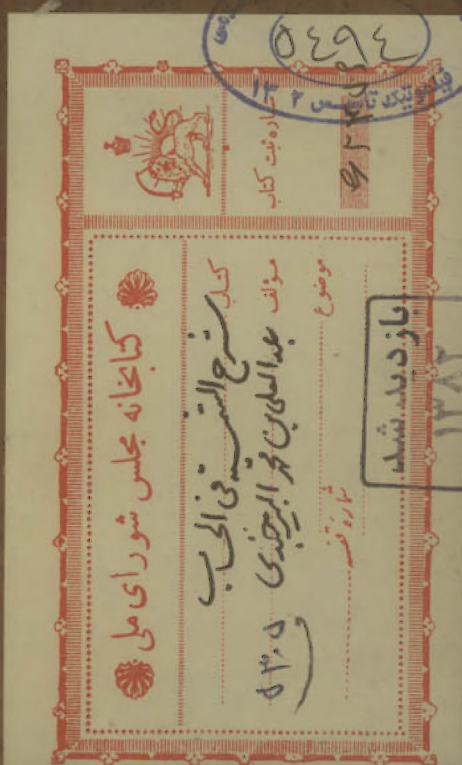 کتابخانه مجلس شورای ملی
کتاب شرح الشمسیه فی الحساب
مؤلف عبدالعلی بن محمد البیرجندی
موضوع
شماره قفسه
۵۳۰۵
شماره ثبت کتاب
۵۴۹۴
بازدید شد
۱۳۸۲